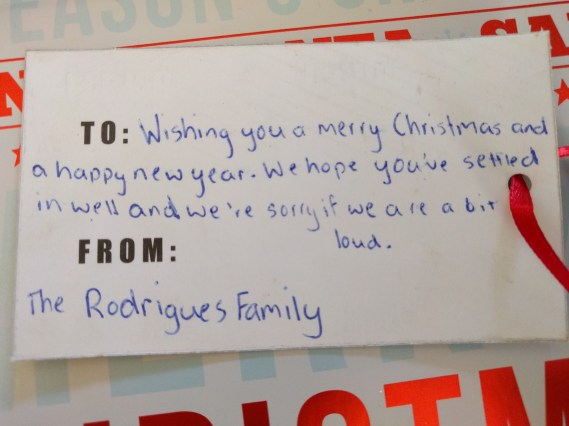 SEASON'S
SA
TO: Wishing you a merry Christmas and
a happy new year. We hope you've settled
in well and we're sorry if we are a bit
loud.
FROM:
The Rodrigues Family